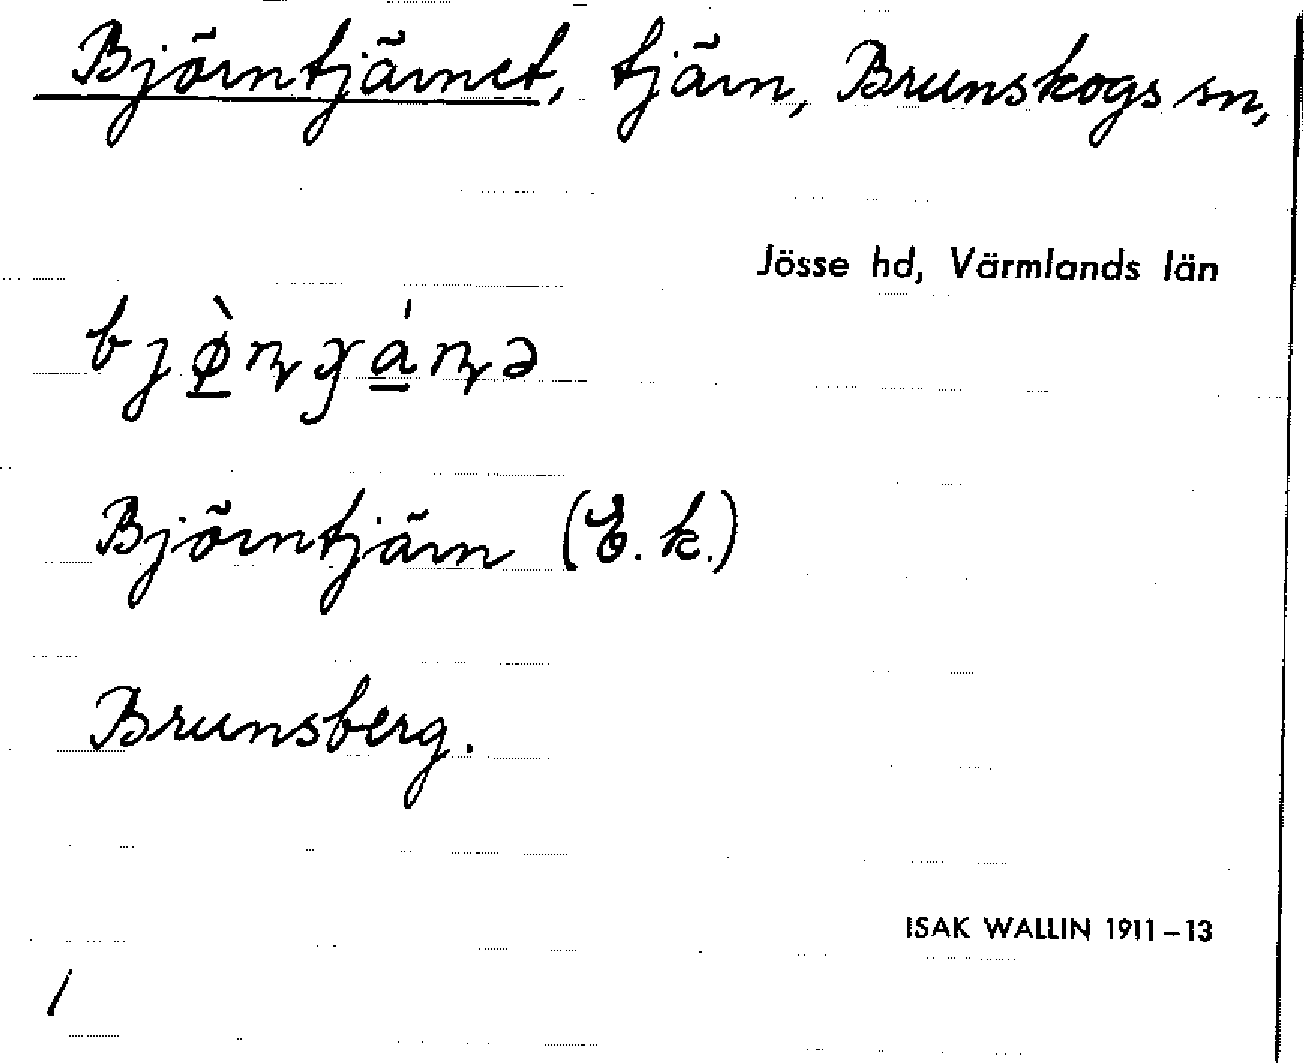 Björntjärnet, tjärn, Brunskogs sn,
Jösse hd, Värmlands län
Björntjärn (E. k.)
Brunsberg.
ISAK WALLIN 1911–13
/